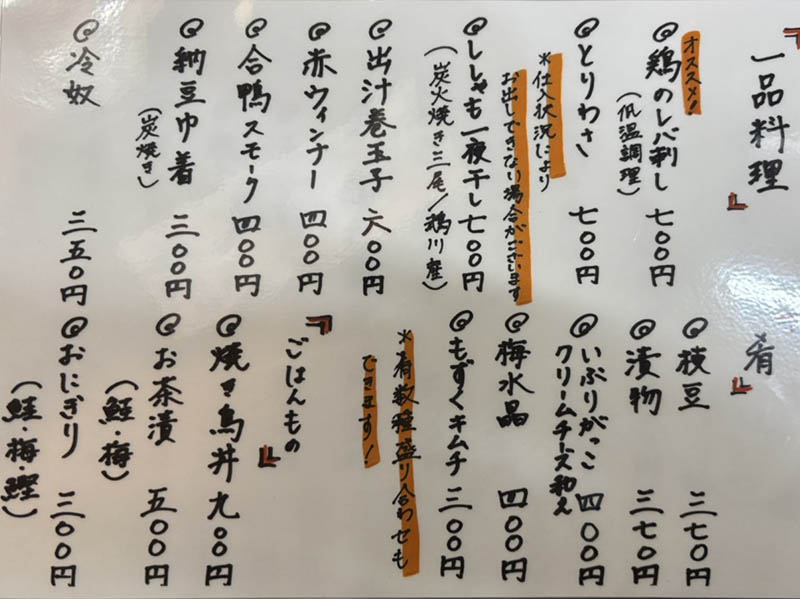 一品料理
オススメ!
鶏のレバ刺し 七〇〇円
(低温調理)
とりわさ 七〇〇円
*仕入状況により
お出しできない場合がございます
ししゃも一夜干し 七〇〇円
(炭火焼き三尾/鵡川産)
出汁巻玉子 六〇〇円
赤ウィンナー 四〇〇円
合鴨スモーク 四〇〇円
納豆巾着 三〇〇円
(炭焼き)
冷奴 三五〇円
肴
枝豆 三七〇円
漬物 三七〇円
いぶりがっこ
クリームチーズ和え 四〇〇円
梅水晶 四〇〇円
もずくキムチ 三〇〇円
*肴数種盛り合わせも
できます!
ごはんもの
焼き鳥丼 九〇〇円
お茶漬 五〇〇円
(鮭・梅)
おにぎり 三〇〇円
(鮭・梅・鰹)